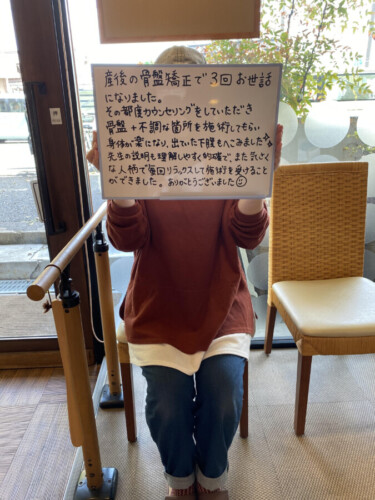 産後の骨盤矯正で3回お世話
になりました。
その都度カウンセリングをしていただき
骨盤+不調な箇所を施術してもらい
身体が楽になり、出ていた下腹もへこみました
先生の説明も理解しやすく的確で、また気さく
な人柄で毎回リラックスして施術を受けること
ができました。ありがとうございました